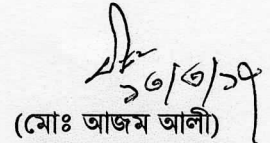 ১৩/৩/১৭
(মোঃ আজম আলী)